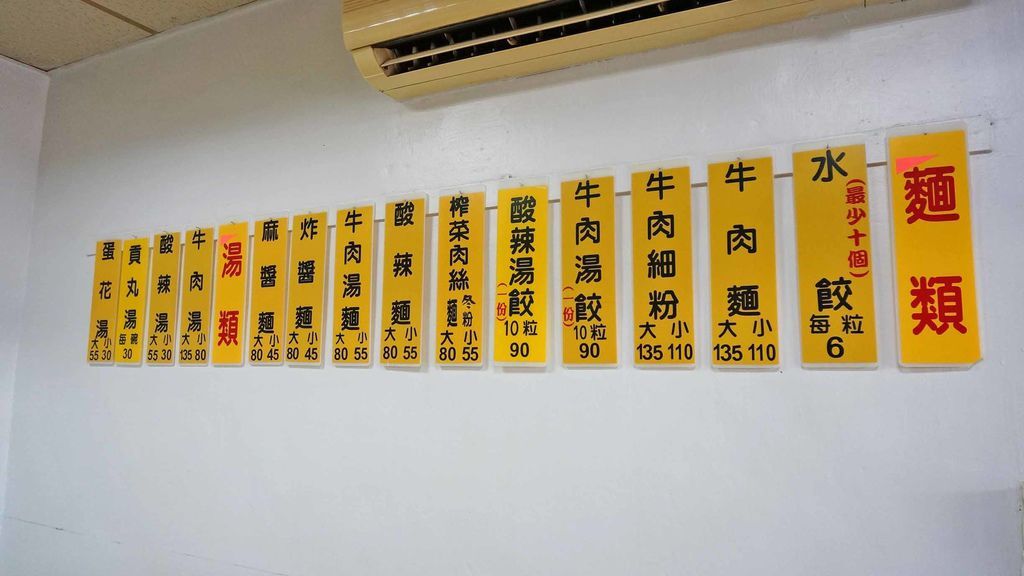 麵類
水餃
(最少十個)
每粒
6
牛肉麵
大 小
135 110
牛肉細粉
大 小
135 110
牛肉湯餃
(一份)
10粒
90
酸辣湯餃
(一份)
10粒
90
榨菜肉絲
冬粉
麵
大 小
80 55
酸辣麵
大 小
80 55
牛肉湯麵
大 小
80 55
炸醬麵
大 小
80 45
麻醬麵
大 小
80 45
湯類
牛肉湯
大 小
135 80
酸辣湯
大 小
55 30
貢丸湯
每碗
30
蛋花湯
大 小
55 30